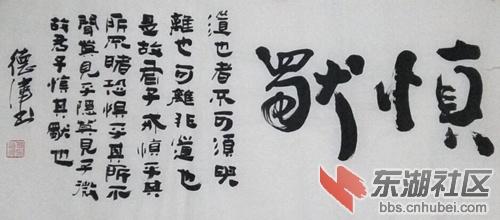 慎獨
道也者不可須臾
離也可離非道也
是故君子戒慎乎其
所不睹恐惧乎其所不
聞莫見乎隱莫見乎微
故君子慎其獨也
德 书
东湖社区
bbs.cnhubei.com